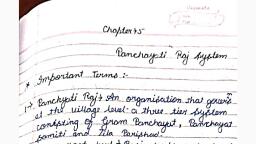 Chapter 5
Panchayati Raj System
* Important Terms :-
1→ Panchyati Raj → An organisation that govern
at the village level a three tier system
consisting of Gram Panchayat, Panchayat
Samiti and Zila Parishad.